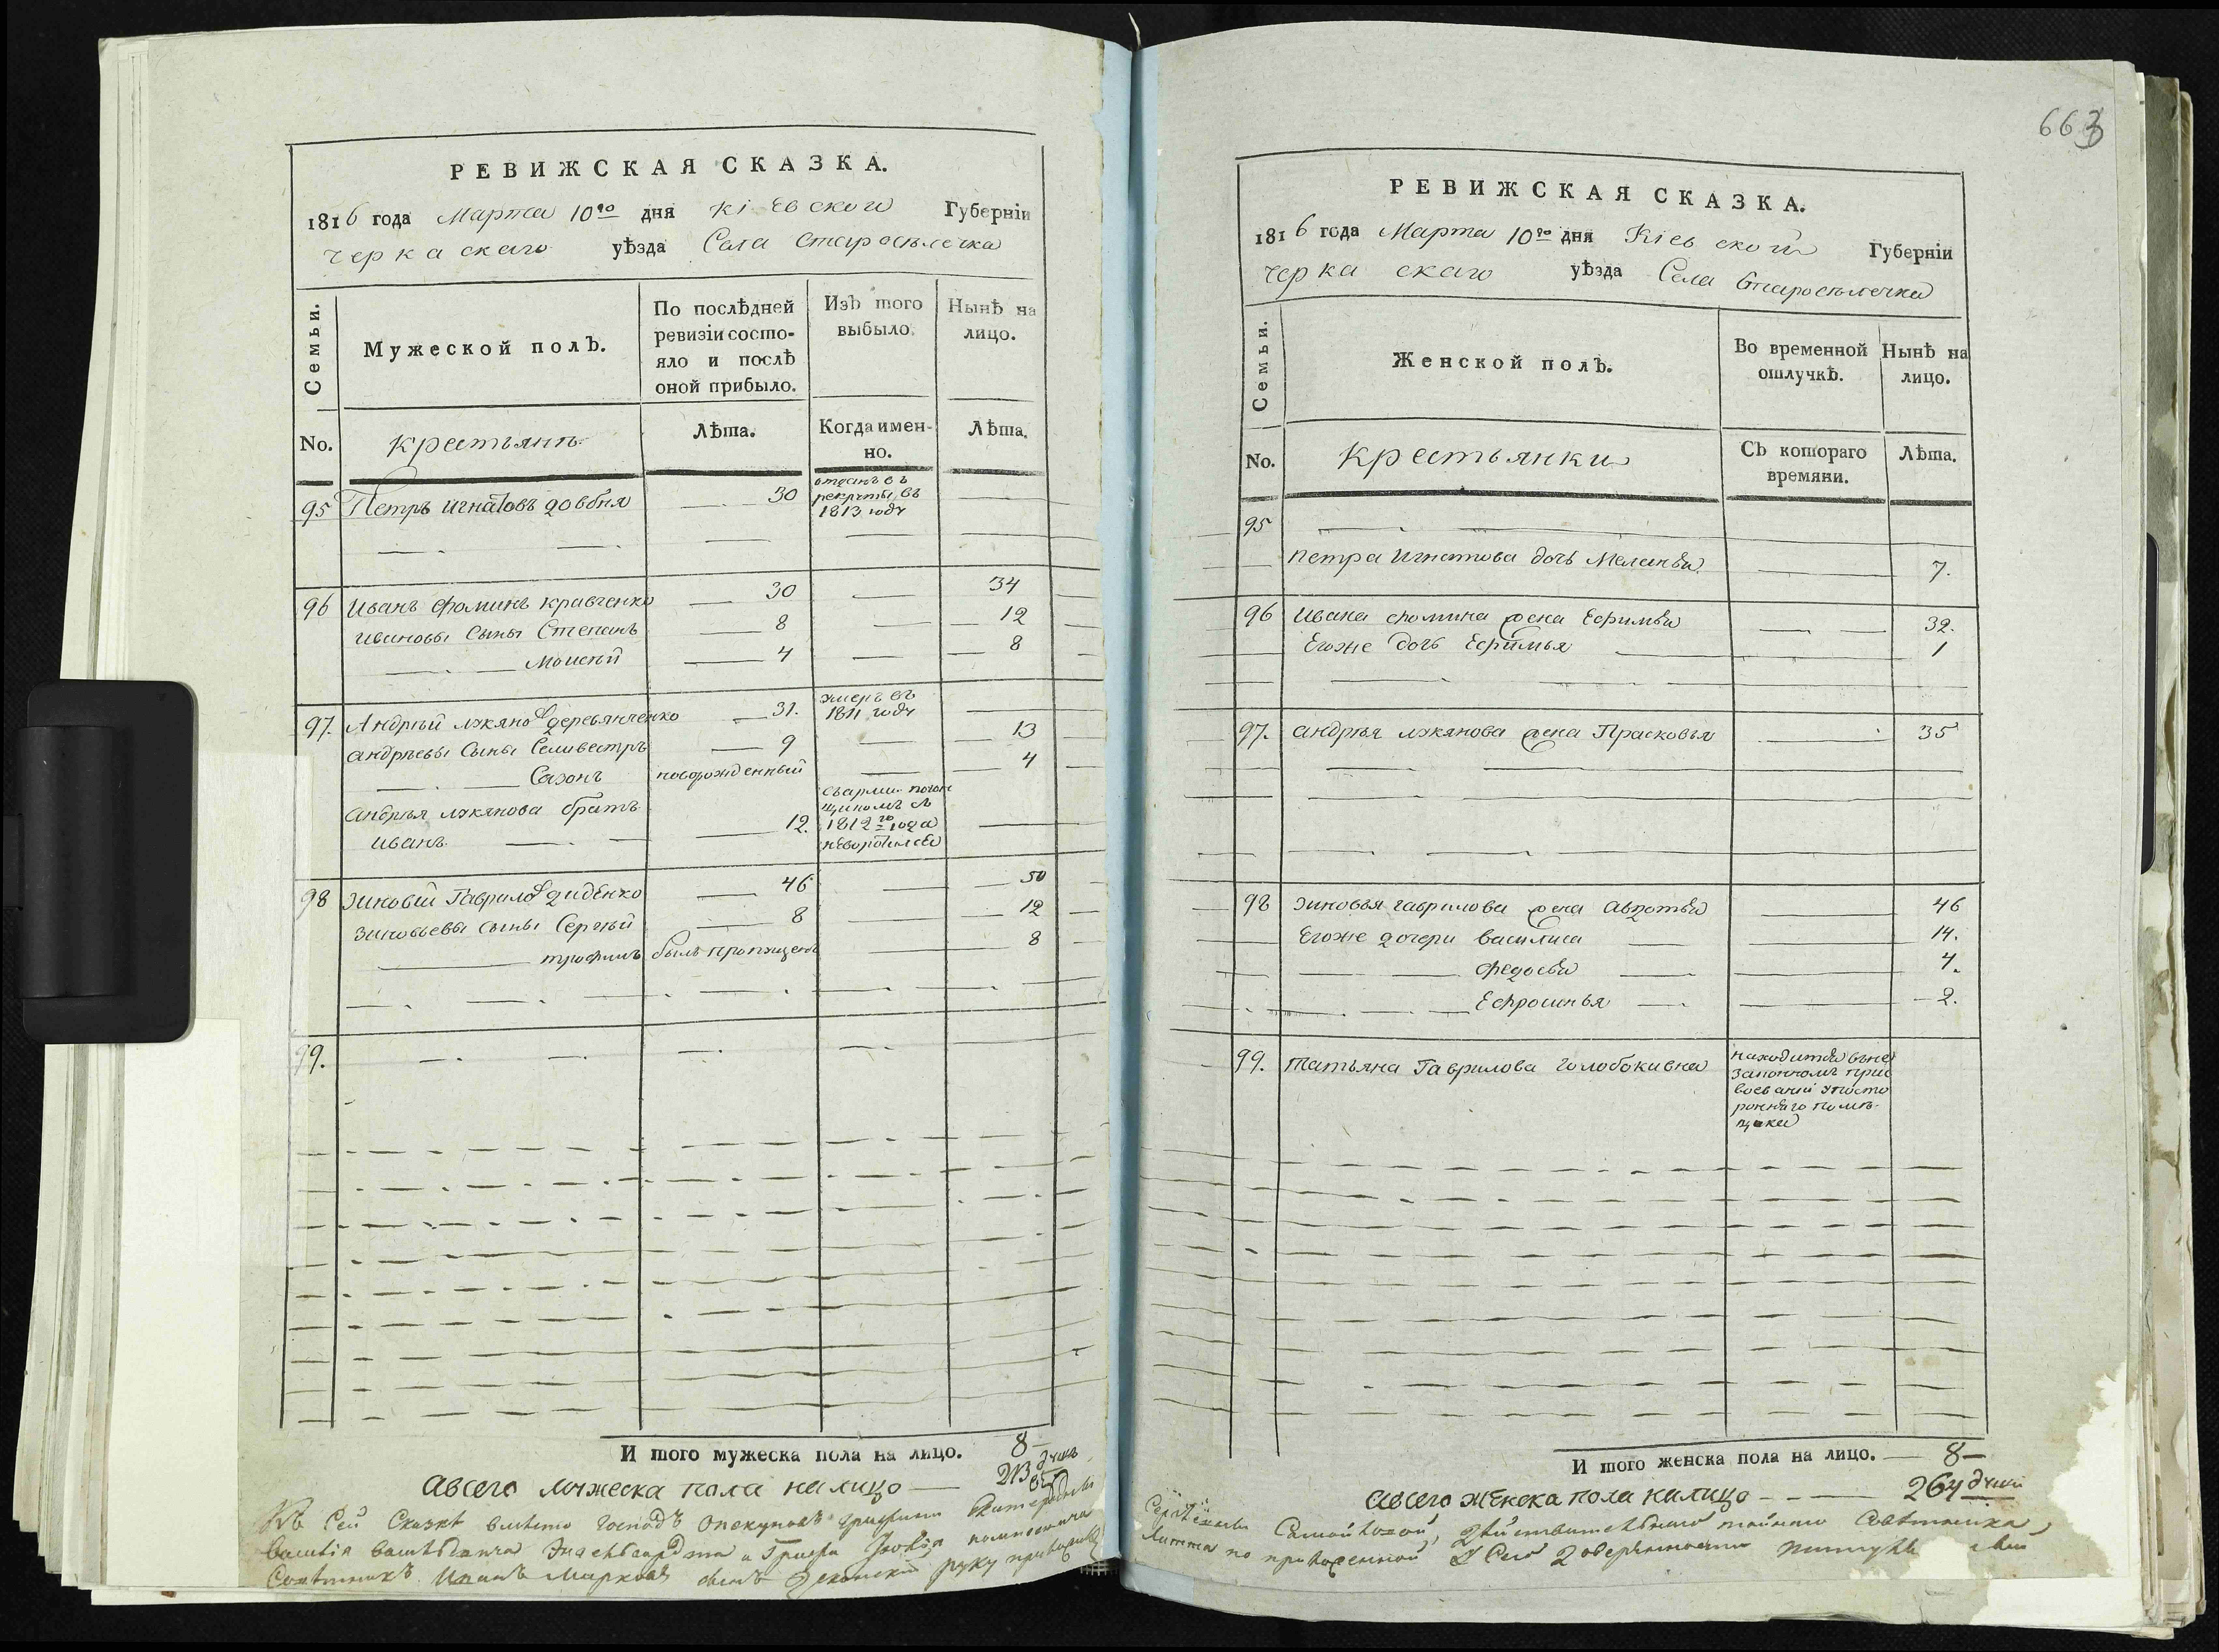 РЕВИЖСКАЯ СКАЗКА.
1816 года Марта 10го дня Кіевской Губерніи
Черкаскаго уѣзда Села Староселечка
Семьи. Мужеской полъ. По послѣдней ревизіи состо- яло и послѣ оной прибыло. Изъ того выбыло. Нынѣ на лицо.
No. крестьянъ Лѣта. Когда имен- но. Лѣта.
95 Петръ Игнатовъ Довбня 30 отданъ въ рекруты въ 1813 году
96 Иванъ Фоминъ Кравченко 30 34
Ивановы сыны Степанъ 8 12
Моисей 4 8
97. Андрѣй Лукяновъ Деревянченко 31. умеръ въ 1811 году
Андрѣевы сыны Селивестръ 9 13
Сазонъ новорожденный 4
Андрѣя Лукянова братъ
Иванъ 12. съ арми. погон щикомъ съ 1812го года неворотился
98 Зиновій Гавриловъ Диденко 46 50
Зиновьевы сыны Сергѣй 8 12
Трофимъ былъ пропущенъ 8
99.
И того мужеска пола на лицо. 8
авсего мужеска пола налицо 213 душъ
Къ сей сказкѣ вмѣсто господъ опекуновъ графини Екатерины
Васильевича Энгельгардта и
Совѣтникъ Иванъ Марковъ сынъ руку приложилъ
663
РЕВИЖСКАЯ СКАЗКА.
1816 года Марта 10го дня Кіевской Губерніи
Черкаскаго уѣзда Села Староселечка
Семьи. Женской полъ. Во временной отлучкѣ. Нынѣ на лицо.
No. крестьянки Съ котораго времяни. Лѣта.
95
Петра Игнатова дочь Меланья 7.
96 Ивана Фомина жена Ефимья 32.
Егоже дочь Ефимья 1
97. Андрѣя Лукянова жена Прасковья 35
98 Зиновья Гаврилова жена Авдотья 46
Егоже дочери Василиса 14.
Федосья 4.
Ефросинья 2.
99. Татьяна Гаврилова Голобокивна находится въ не законномъ при своеваніи у посто ронняго помѣ- щика
И того женска пола на лицо. 8
авсего женска пола налицо 264 души
Самойловой, дѣйствительнаго тайнаго Совѣтника,
Литта по приложенной у сего довѣренности